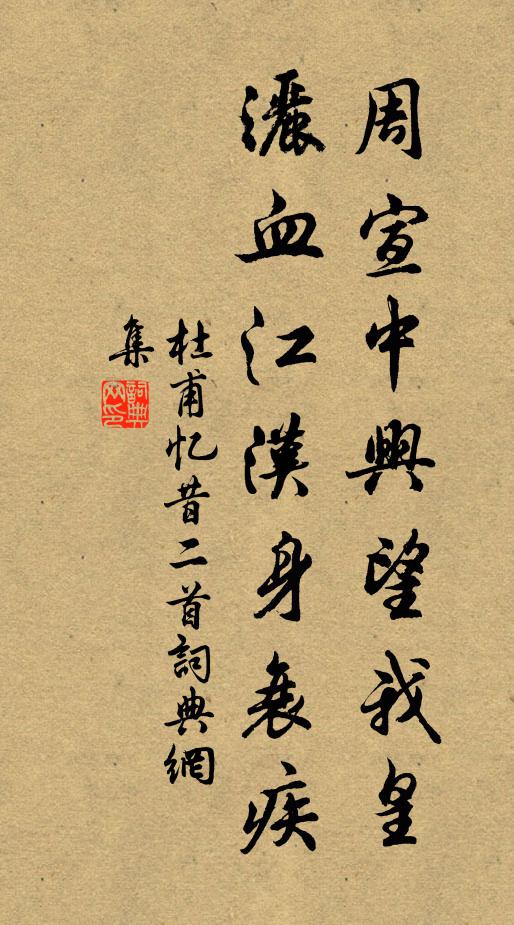 周宣中興望我皇
灑血江漢身衰疾
杜甫忆昔二首詞典網
集
詞典
网印